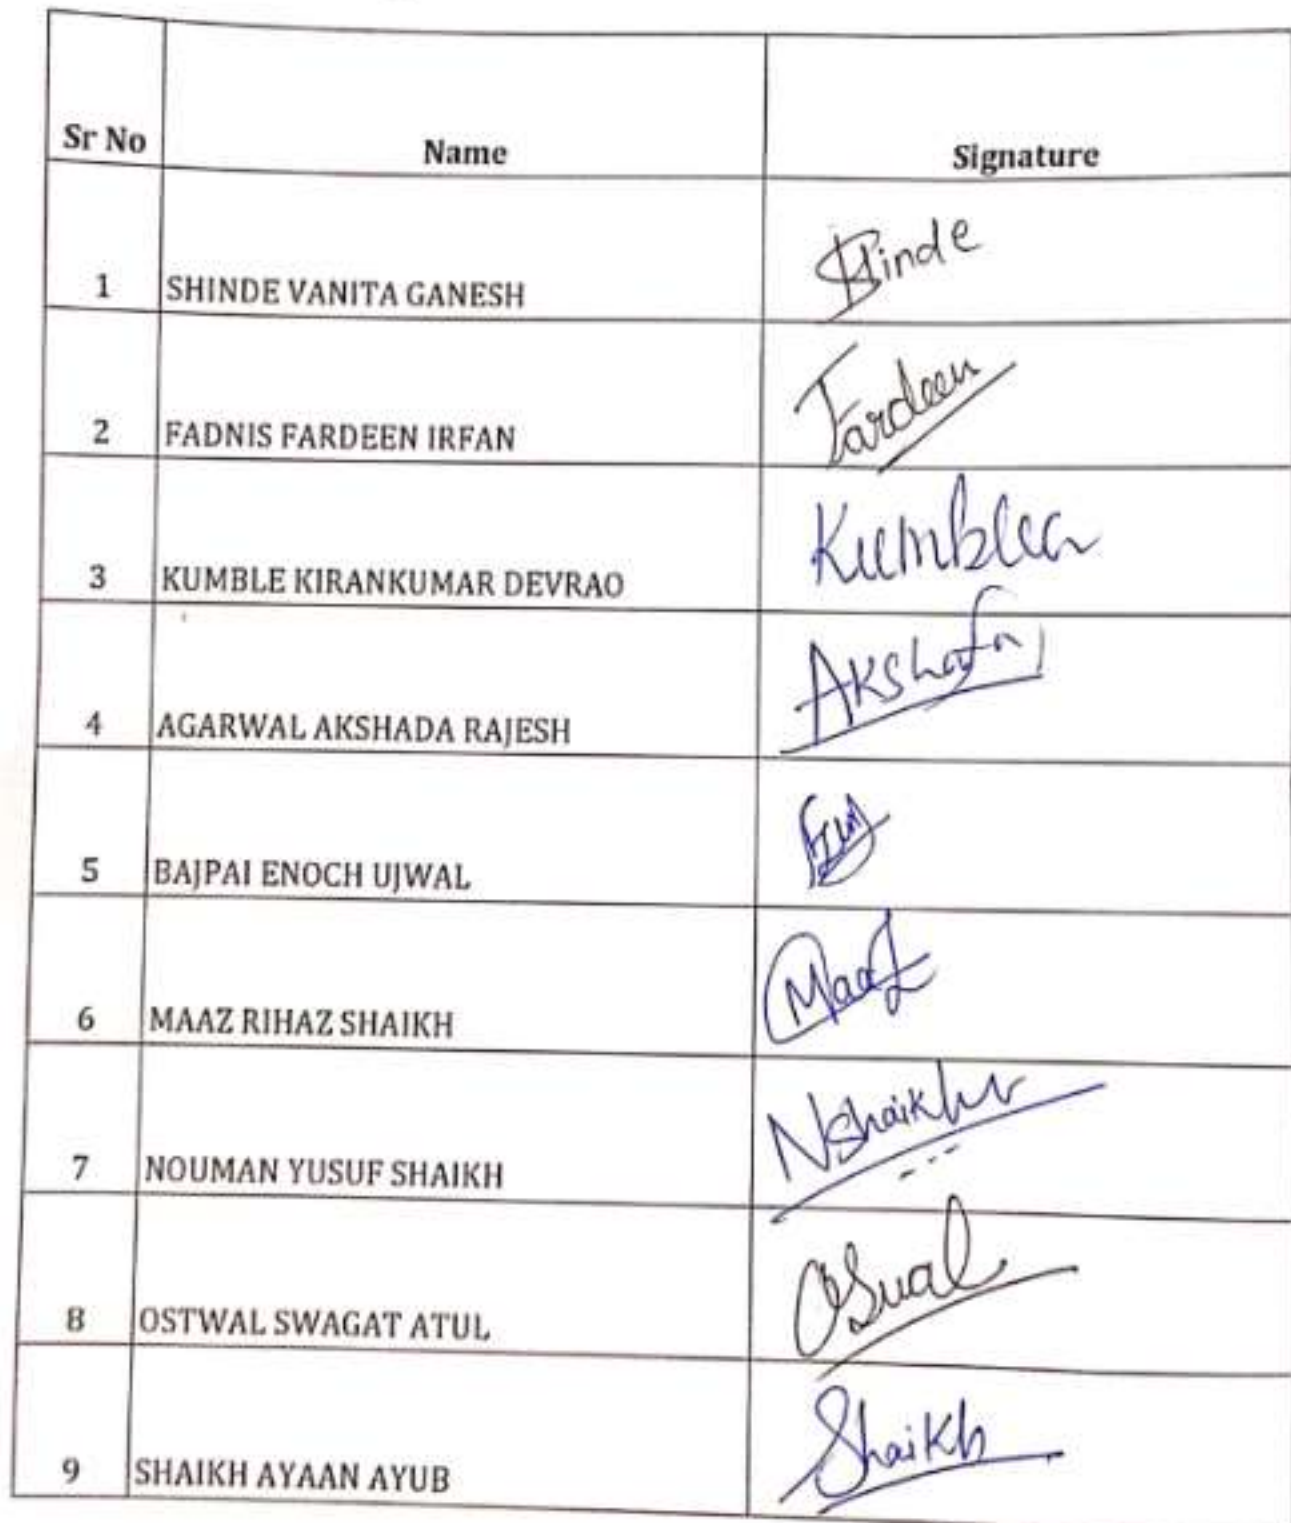 Sr No Name Signature
1 SHINDE VANITA GANESH Shinde
2 FADNIS FARDEEN IRFAN Fardeen
3 KUMBLE KIRANKUMAR DEVRAO
4 AGARWAL AKSHADA RAJESH
5 BAJPAI ENOCH UJWAL
6 MAAZ RIHAZ SHAIKH Maaz
7 NOUMAN YUSUF SHAIKH
8 OSTWAL SWAGAT ATUL
9 SHAIKH AYAAN AYUB Shaikh